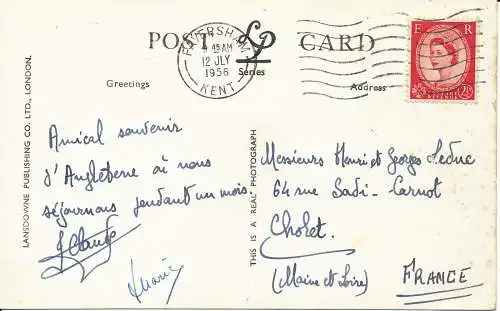 POST LP CARD
Series
FAVERSHAM
45 AM
12 JLY
1956
KENT
E R
2½
Greetings
Address
LANSDOWNE PUBLISHING CO. LTD., LONDON.
THIS IS A REAL PHOTOGRAPH
Amical souvenir
d'Angleterre où nous
séjournons pendant un mois.
Marie
Messieurs Henri et Georges Leduc
64 rue Sadi-Carnot
Cholet
(Maine et Loire)
FRANCE